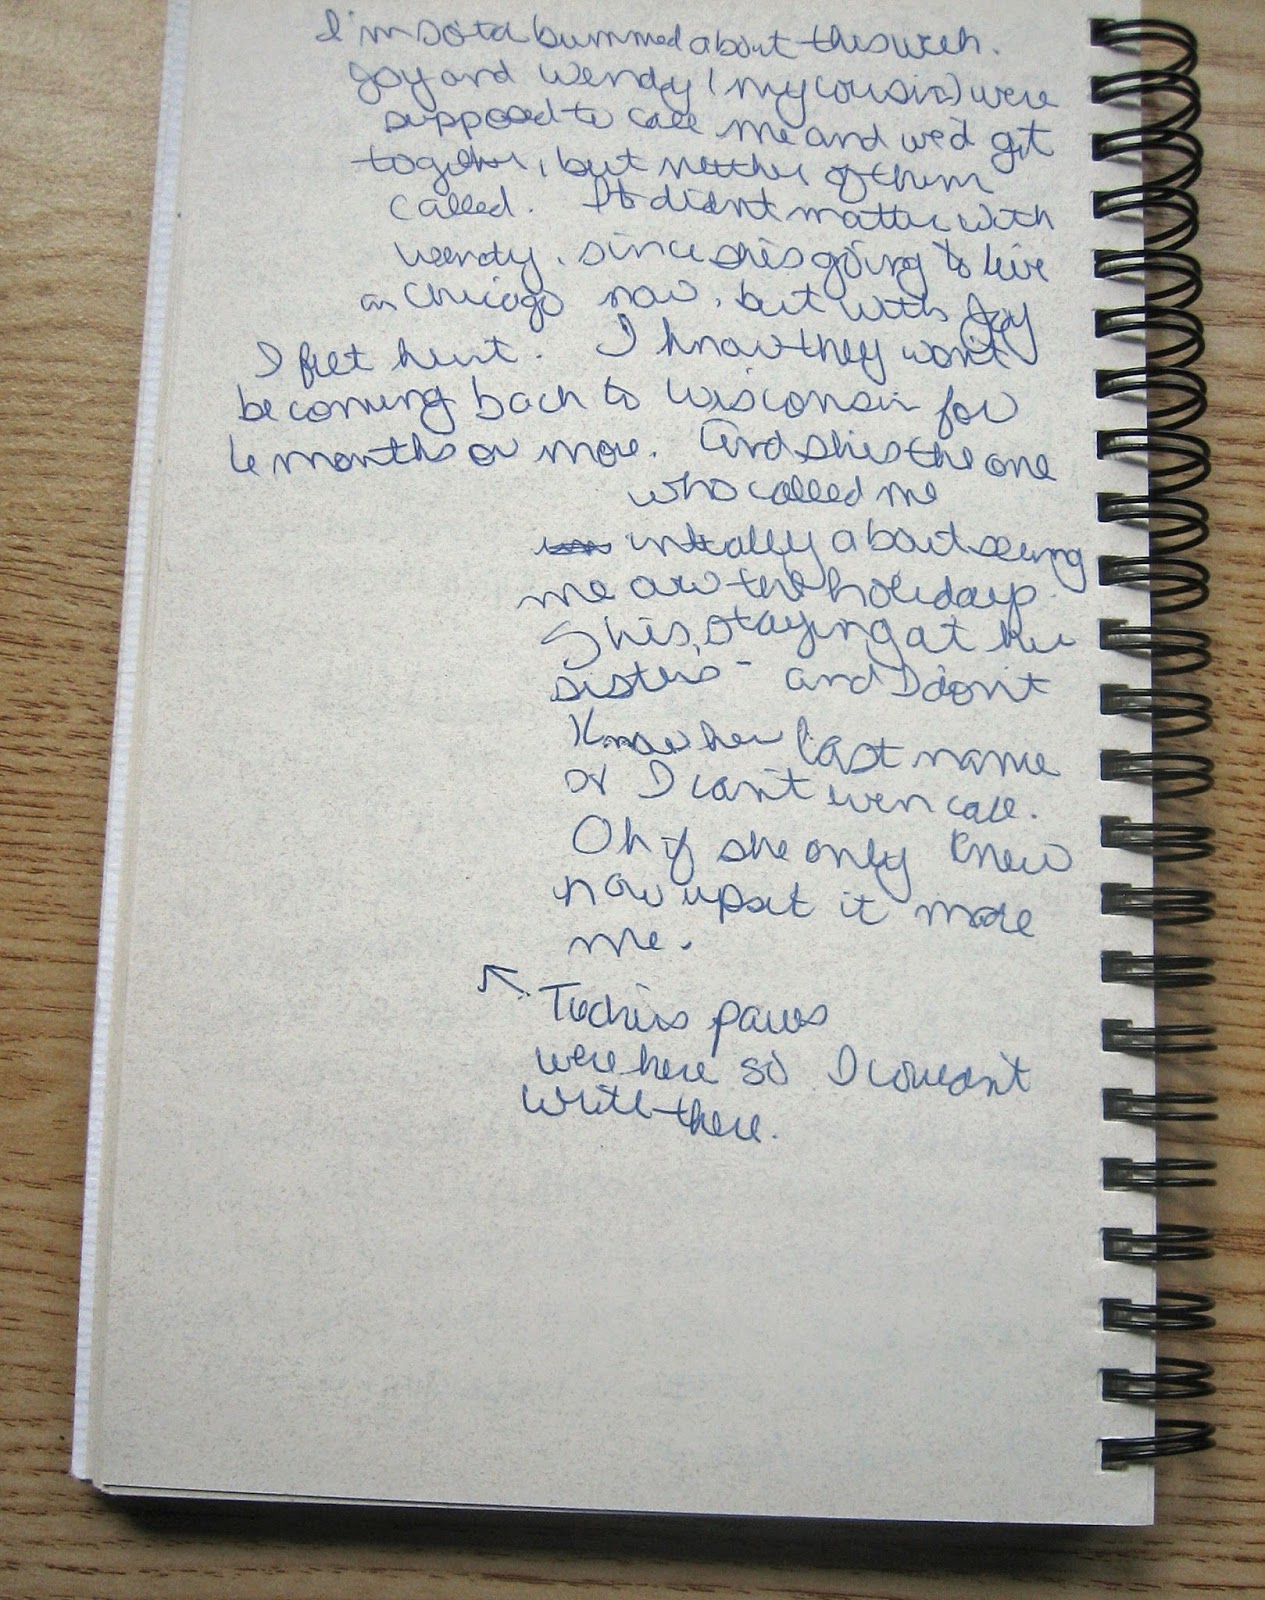 I'm sorta bummed about this week.
Joy and Wendy (my cousin) were
supposed to call me and we'd get
together, but neither of them
called. It didn't matter with
Wendy, since she's going to live
in Chicago now, but with Joy
I felt hurt. I know they won't
be coming back to Wisconsin for
6 months or more. And she's the one
who called me
initially about seeing
me over the holidays.
She's staying at her
sister's - and I don't
know her last name
or I can't even call.
Oh if she only knew
how upset it made
me.
paws
were here so I couldn't
write there.